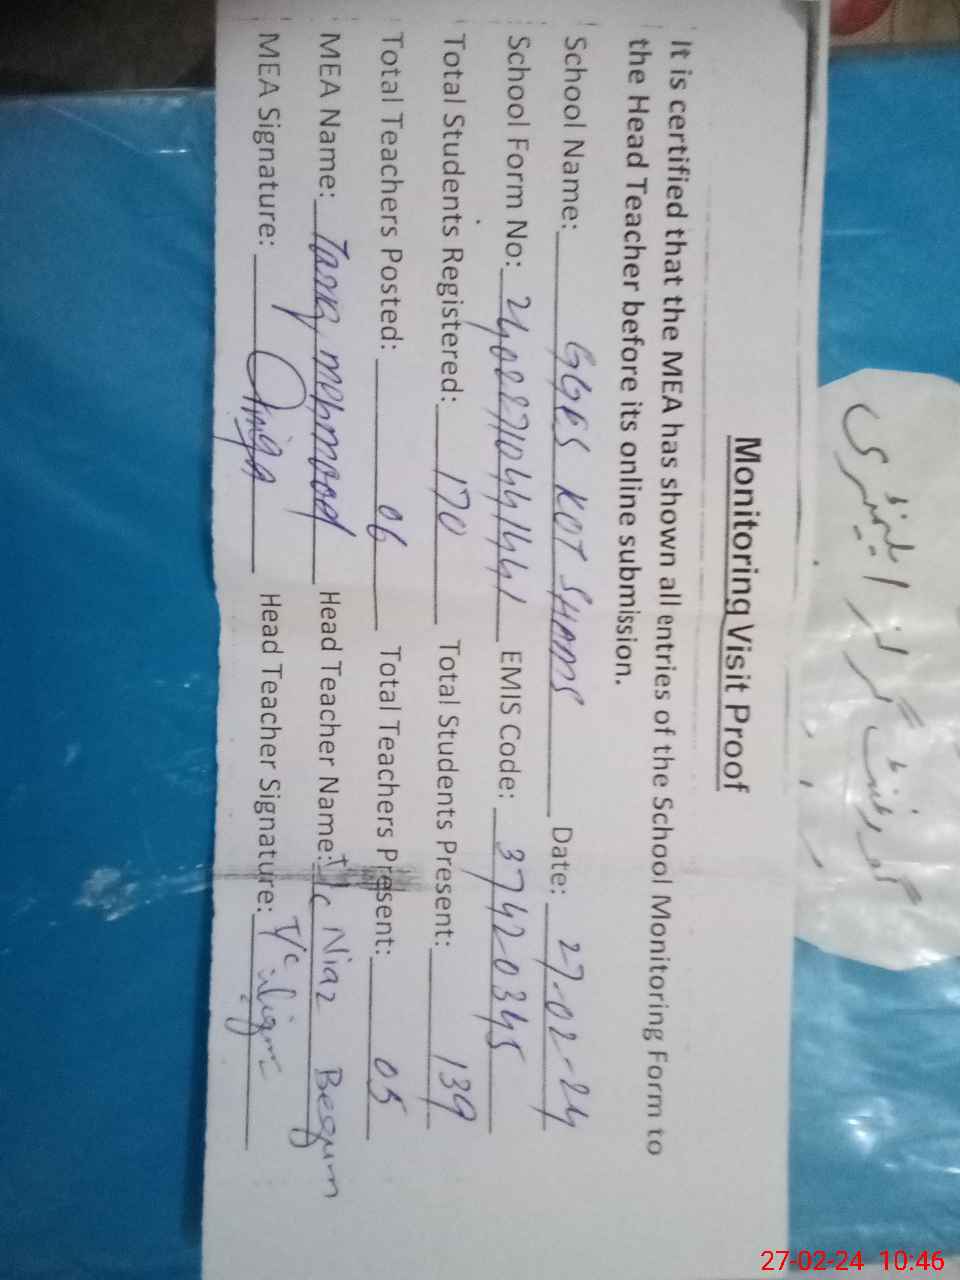 Monitoring Visit Proof
It is certified that the MEA has shown all entries of the School Monitoring Form to
the Head Teacher before its online submission.
School Name: GGES KOT SHAMS Date: 27-02-24
School Form No: EMIS Code: 37420345
Total Students Registered: 170 Total Students Present: 139
Total Teachers Posted: 06 Total Teachers Present: 05
MEA Name: Tariq mehmood Head Teacher Name: T/c Niaz Begum
MEA Signature: Head Teacher Signature: T/c
گورنمنٹ گرلز ایلیمنٹری
27-02-24 10:46